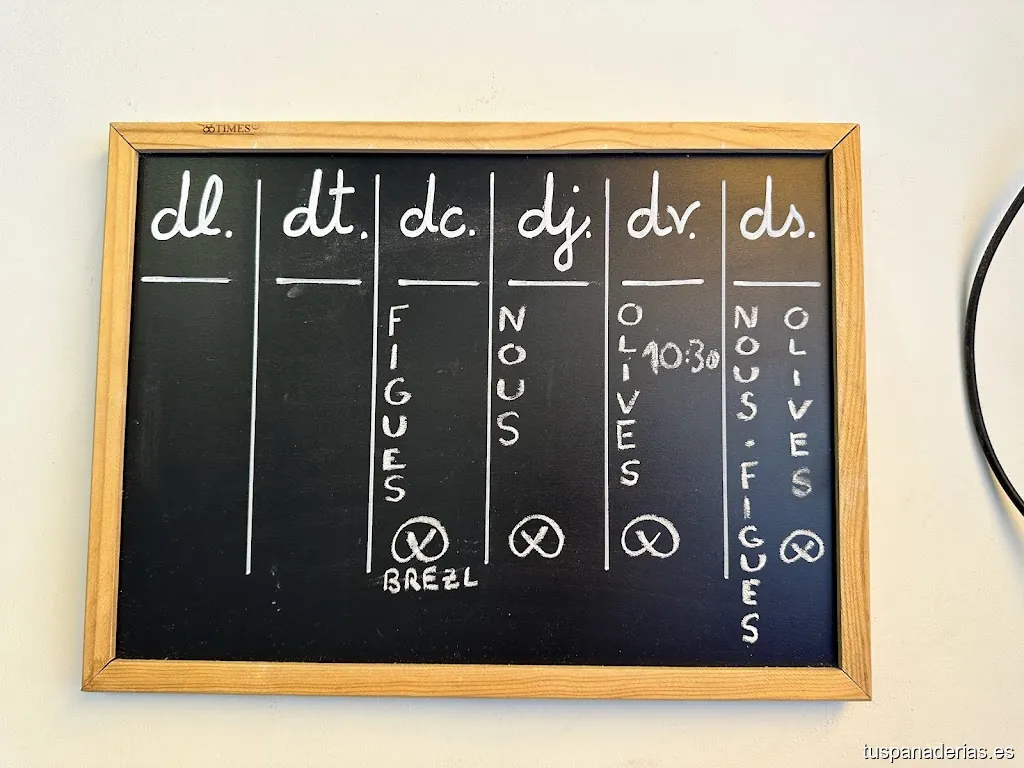 TIMES
dl. dt. dc. dj. dv. ds.
FIGUES
BREZL
NOUS
OLIVES
10:30
NOUS · FIGUES
OLIVES
tuspanaderias.es